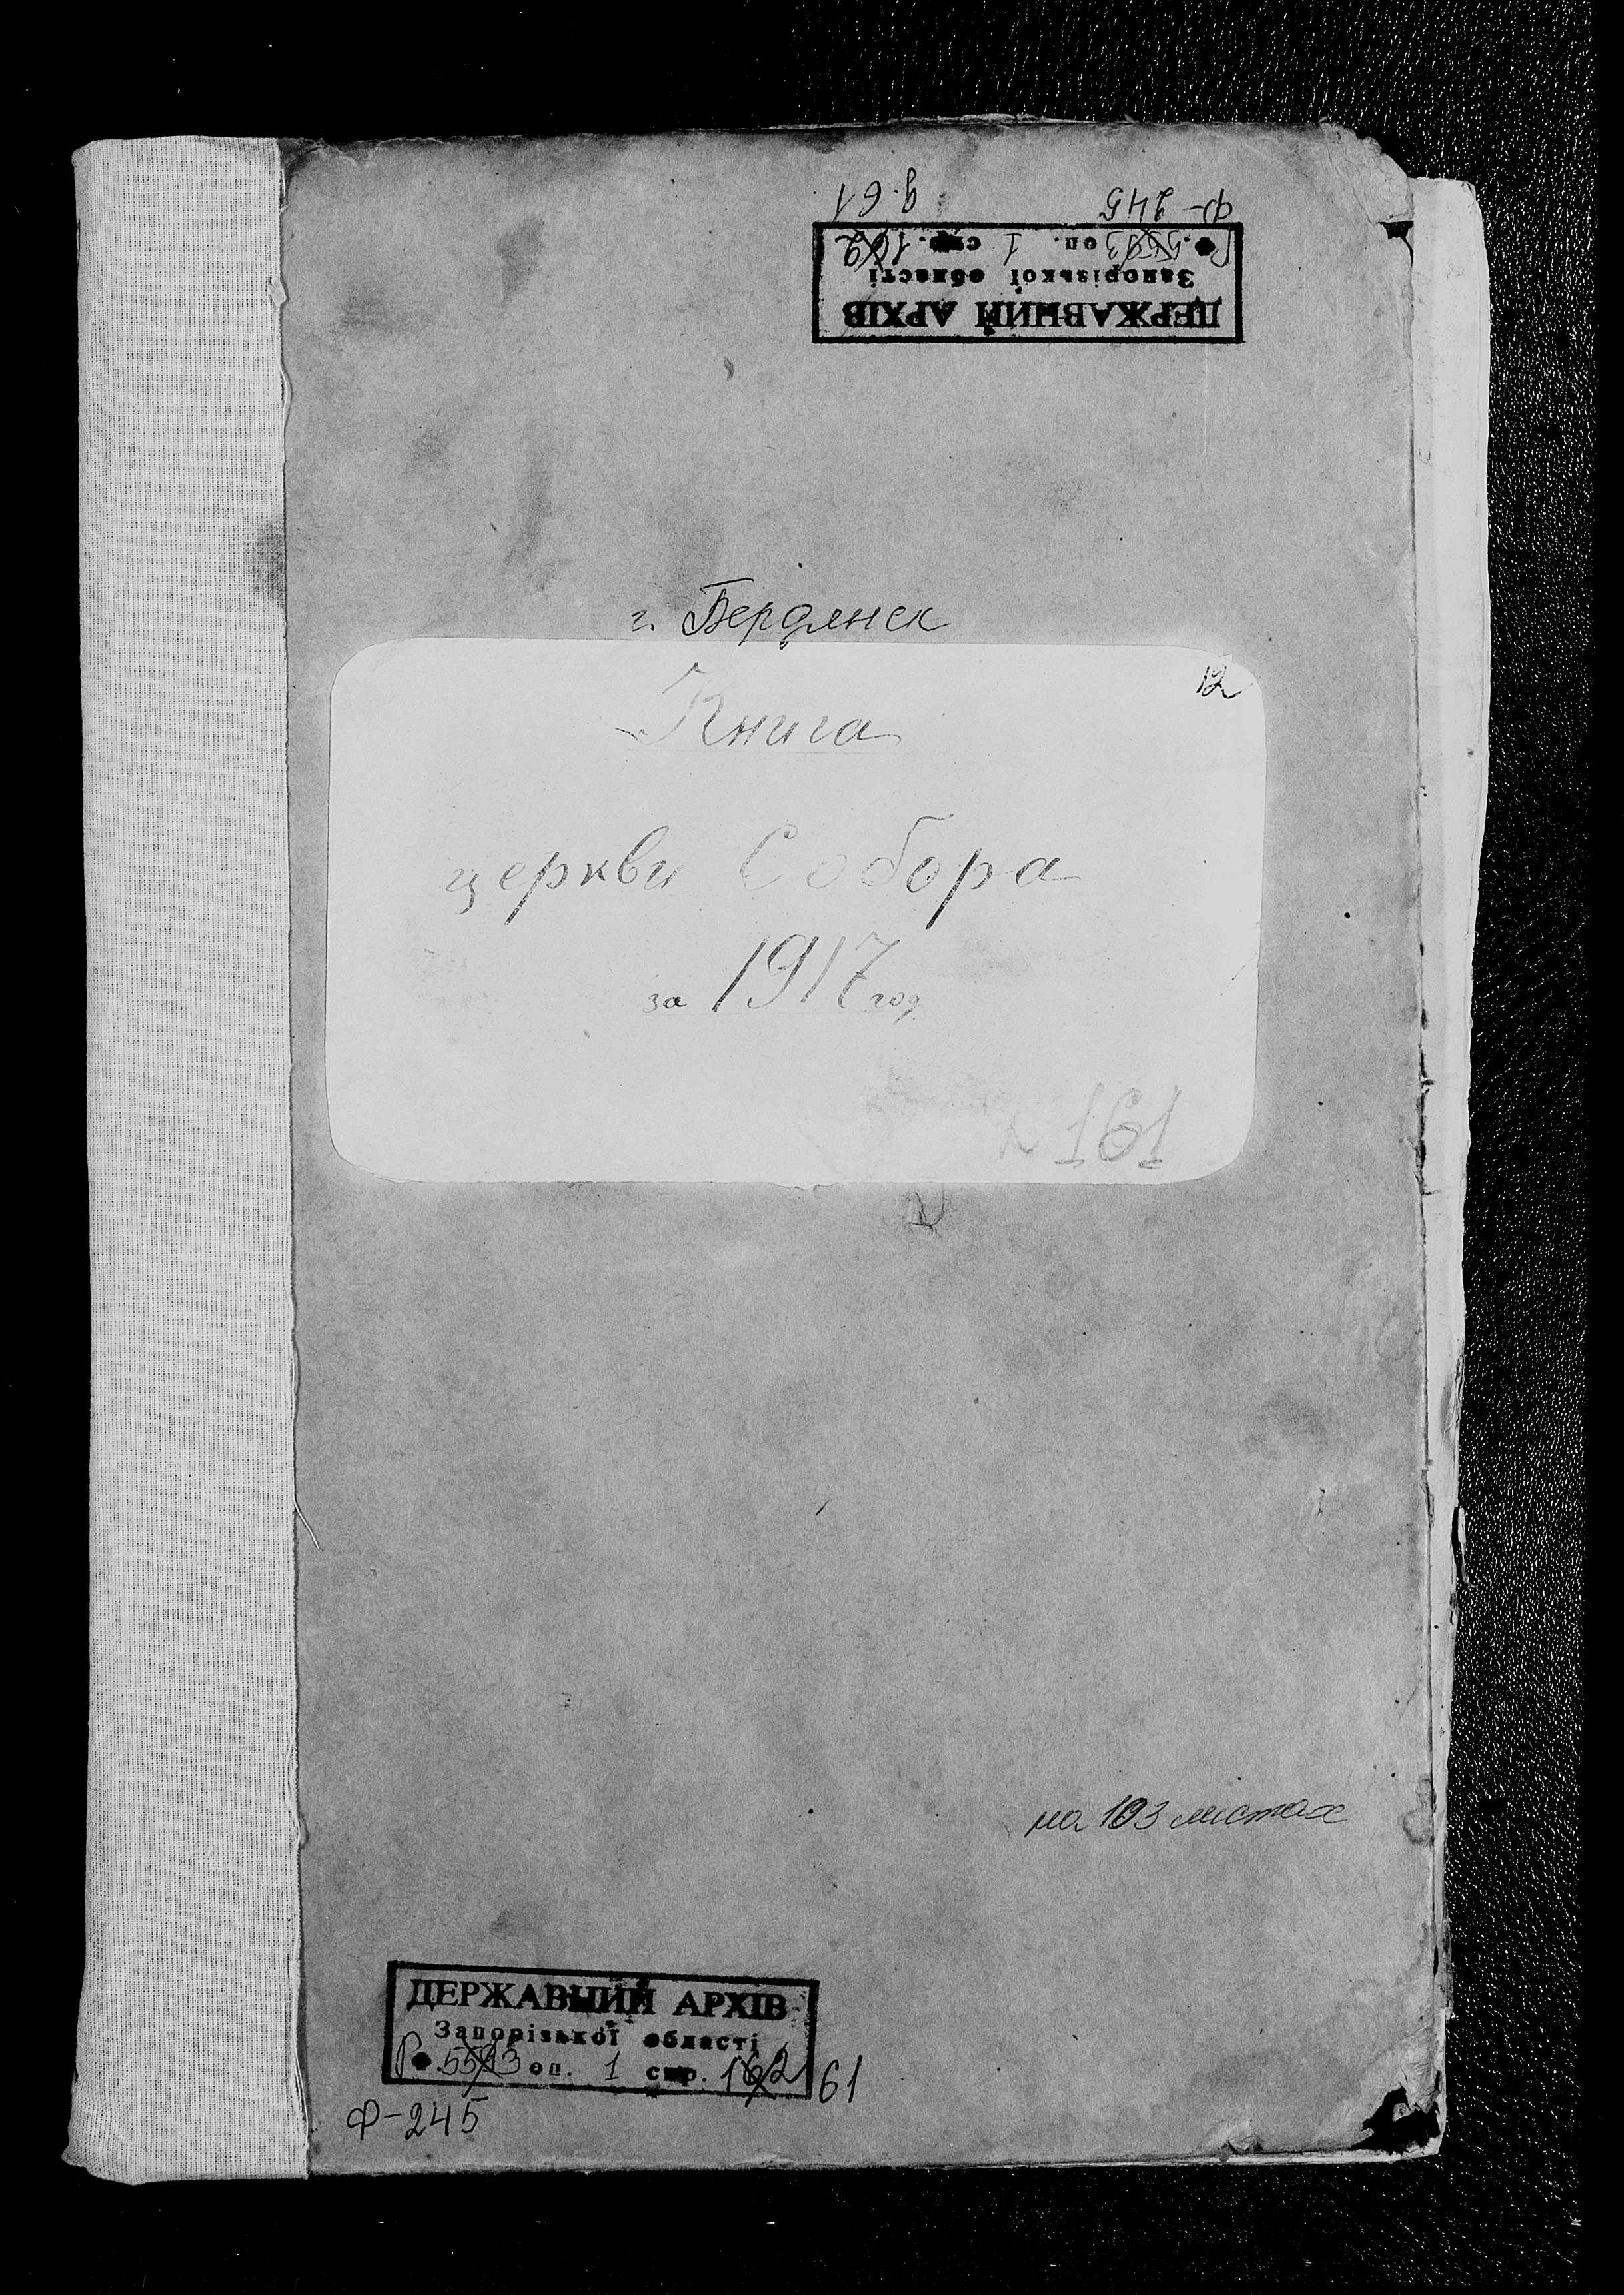 ф-245 д.61
Р. 5593 оп. 1 спр. 162
Запорізької області
ДЕРЖАВНИЙ АРХІВ
г. Бердянск
12
Книга
церкви Собора
за 1917 год
161
на 193 листах
ДЕРЖАВНИЙ АРХІВ
Запорізької області
Р. 5593 оп. 1 спр. 162 61
Ф-245